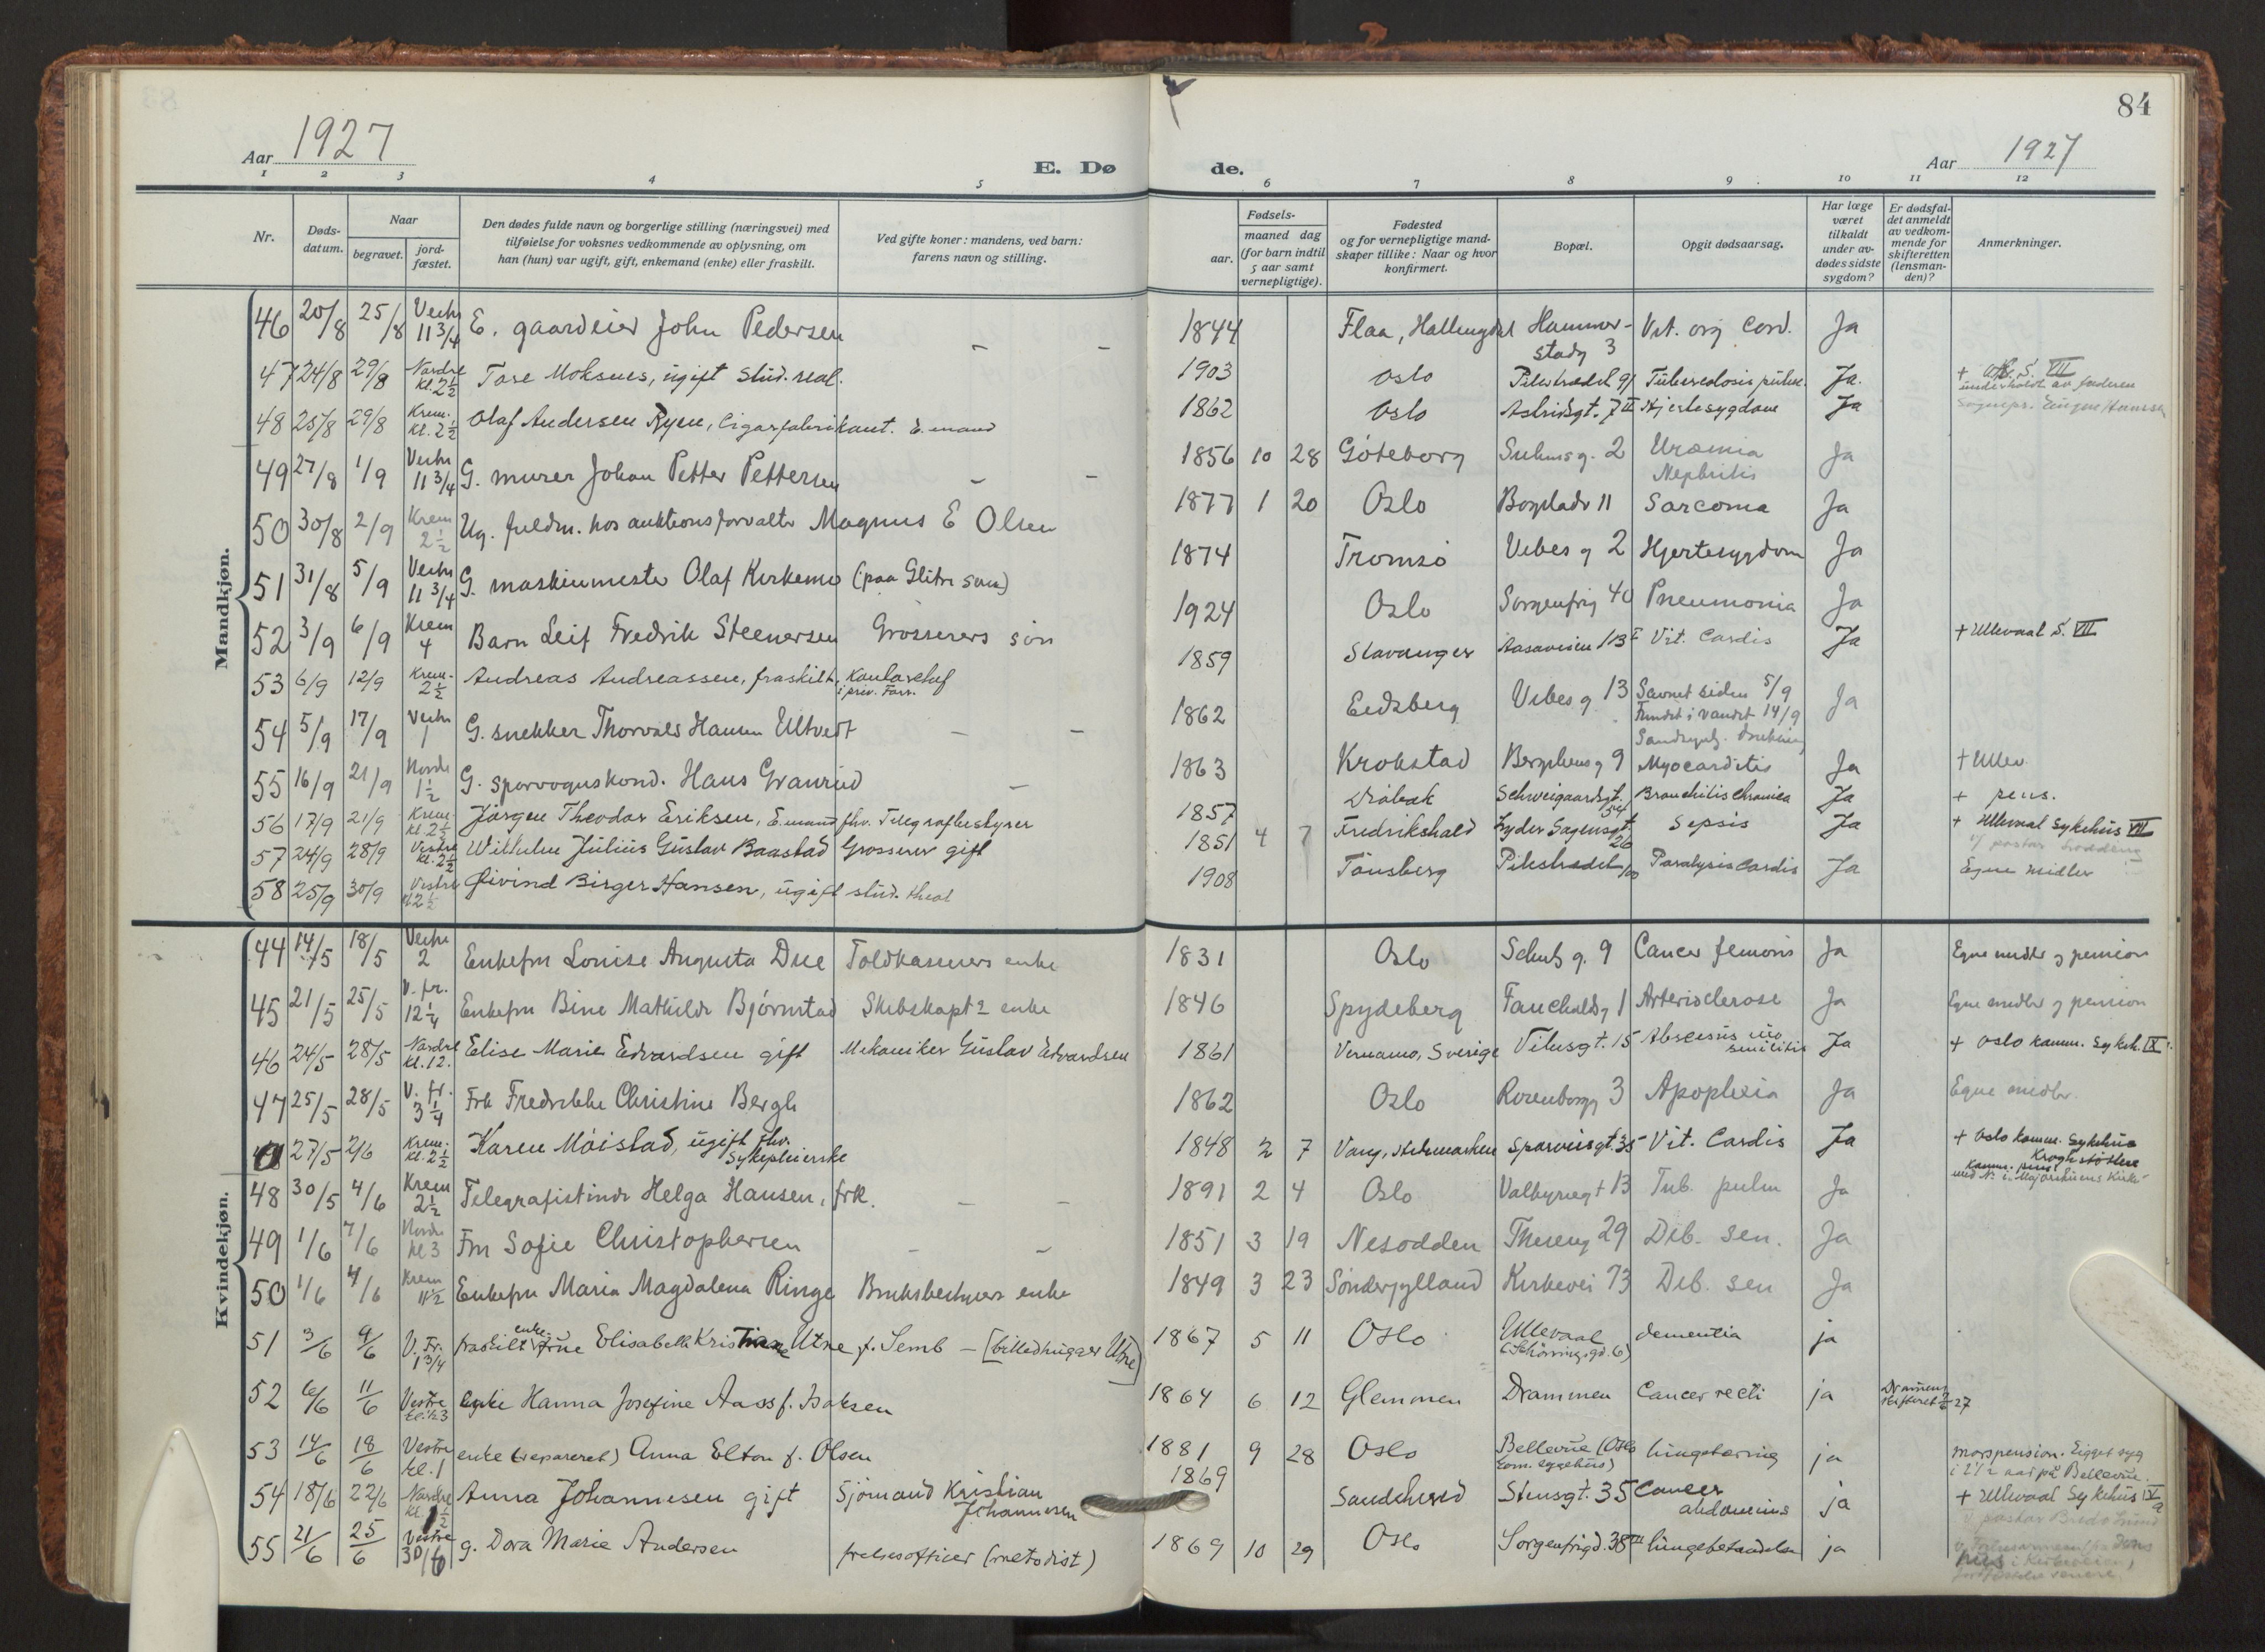 84
Aar 1927
E. Dø de.
Aar 1927
1 2 3 4 5 6 7 8 9 10 11 12
Nr.
Døds-
datum.
Naar
begravet.
jord-
fæstet.
Den dødes fulde navn og borgerlige stilling (næringsvei) med
tilføielse for voksnes vedkommende av oplysning, om
han (hun) var ugift, gift, enkemand (enke) eller fraskilt.
Ved gifte koner: mandens, ved barn:
farens navn og stilling.
Fødsels-
aar.
maaned dag
(for barn indtil
5 aar samt
vernepligtige).
Fødested
og for vernepligtige mand-
skaper tillike: Naar og hvor
konfirmert.
Bopæl.
Opgit dødsaarsag.
Har læge
været
tilkaldt
under av-
dødes sidste
sygdom?
Er dødsfal-
det anmeldt
av vedkom-
mende for
skifteretten
(lensman-
den)?
Anmerkninger.
Mandkjøn.
46 20/8 25/8 Vestre 11 3/4 E. gaardeier John Pedersen - - 1844 Flaa, Hallingdal Hammer-
stadg 3 Vit. org cord. Ja
47 24/8 29/8 Nordre kl. 2 1/2 Tore Moksnes, ugift stud. real. 1903 Oslo Pilestrædet 91 Tuberculosis pulm. Ja. + S. VII
underholdt av faderen
48 25/8 29/8 Krem. kl. 2 1/2 Olaf Andersen Ryen, Cigarfabrikant. E. mand 1862 Oslo Astridsgt. 7 II Hjertesygdom Ja Sognepr. Eugen Hanssen
49 27/8 1/9 Vestre 11 3/4 G. murer Johan Petter Pettersen - - 1856 10 28 Göteborg Suhmsg. 2 Uræmia
Nephritis Ja
50 30/8 2/9 Krem 2 1/2 Ug. fuldm. hos auktionsforvalter Magnus E Olsen 1877 1 20 Oslo Bogstadv 11 Sarcoma Ja
51 31/8 5/9 Vestre 11 3/4 G. maskinmester Olaf Kirkemo (paa Glitre san) 1874 Tromsö Vibes g 2 Hjertesygdom Ja
52 3/9 6/9 Krem 4 Barn Leif Fredrik Steenersen Grosserers sön 1924 Oslo Sorgenfrig 40 Pneumonia Ja
53 6/9 12/9 Krem. 2 1/2 Andreas Andreassen, fraskilt, Kontorchef
i priv. Forr. 1859 Stavanger Aasaveien 13 I Vit. Cardis Ja + Ullevaal S. VII
54 5/9 17/9 Vestre 1 G. snekker Thorvald Hansen Ultvedt - - 1862 Eidsberg Vibes g. 13 Savnet siden 5/9
Fundet i vandet 14/9
Sandsynl. drukning Ja
55 16/9 21/9 Nordre 1 1/2 G. sporvognskond. Hans Granrud - 1863 Krokstad Bergsliensg 9 Myocarditis Ja + Ullev
56 17/9 21/9 Krem kl. 2 1/2 Jörgen Theodor Eriksen, E. mand fhv. Telegrafbestyrer 1857 Dröbak Schweigaardsgt. 54 Bronchitis chronica Ja + pens.
57 24/9 28/9 Vestre kl. 2 1/2 Wilhelm Julius Gustav Baastad Grosserer gift 1851 4 7 Fredrikshald Lyder Sagensgt. 26 Sepsis Ja + Ullevaal Sykehus VII
58 25/9 30/9 Vestre kl 2 1/2 Øivind Birger Hansen, ugift stud. theol 1908 Tönsberg Pilestrædet 100 Paralysis cardis Ja Egne midler
Kvindekjøn.
44 14/5 18/5 Vestre 2 Enkefru Louise Augusta Due Toldkaserers enke 1831 Oslo Schultz g. 9 Cancer femoris Ja Egne midler og pension
45 21/5 25/5 V. fr. 12 1/4 Enkefru Bine Mathilde Bjørnstad Skibskaptns enke 1846 Spydeberg Fauchaldsg 1 Arterisclerose Ja Egne midler og pension
46 24/5 28/5 Nordre kl. 12. Elise Marie Edvardsen gift Mekaniker Gustav Edvardsen 1861 Vernamo, Sverige Vibesgt. 15 Abscessus Ja + Oslo komm. Sykeh. IX
47 25/5 28/5 V. fr. 3 1/4 Frk Fredrikke Christine Bergh 1862 Oslo Rosenborgg 3 Apoplexia Ja Egne midler.
27/5 2/6 Krem. kl. 2 1/2 Karen Möistad, ugift fhv.
Sykepleierske 1848 2 7 Vang, Hedemarken Sporveisgt. 35 Vit. Cardis Ja + Oslo komm. Sykehus
Krogh støttene
Komm. pens.
med N. i Majorstuens Kirke
48 30/5 4/6 Krem 2 1/2 Telegrafistinde Helga Hansen, frk. - - 1891 2 4 Oslo Valkyriegt 13 Tub. pulm Ja
49 1/6 7/6 Nordre kl 3 Fru Sofie Christophersen - - 1851 3 19 Nesodden Thereseg 29 Deb. sen. Ja
50 1/6 4/6 Krem 11 1/2 Enkefru Maria Magdalena Ringe Bruksbestyrers enke 1849 3 23 Sönderjylland Kirkevei 73 Deb. sen Ja
51 3/6 9/6 V. Fr. 1 3/4 fraskilt enke frue Elisabeth Kristiane Utne f. Semb - [billedhugger Utne] 1867 5 11 Oslo Ullevaal
(Schönningsgd. 6) dementia ja
52 6/6 11/6 Vestre enke Hanna Josefine Aass f. Isaksen 1864 6 12 Glemmen Drammen Cancer recti ja Drammens
skifteret 27
53 14/6 18/6 Vestre kl. 1 enke (separeret) Anna Elton f. Olsen 1881 9 28 Oslo Bellevue (Oslo
kom. sygehus) lungetæring ja morspension. Ligget syg
i 2 1/2 aar på Bellevue.
54 18/6 22/6 Nordre Anna Johannesen gift Sjömand Kristian
Johannesen 1869 Sandeherred Stensgt. 35 Cancer
abdominis ja + Ullevaal Sykehus IX a
55 21/6 25/6 Vestre 30/6 g. Dora Marie Andersen frelsesofficer (metodist) 1869 10 29 Oslo Sorgenfrigd. 38 III lungebetændelse ja